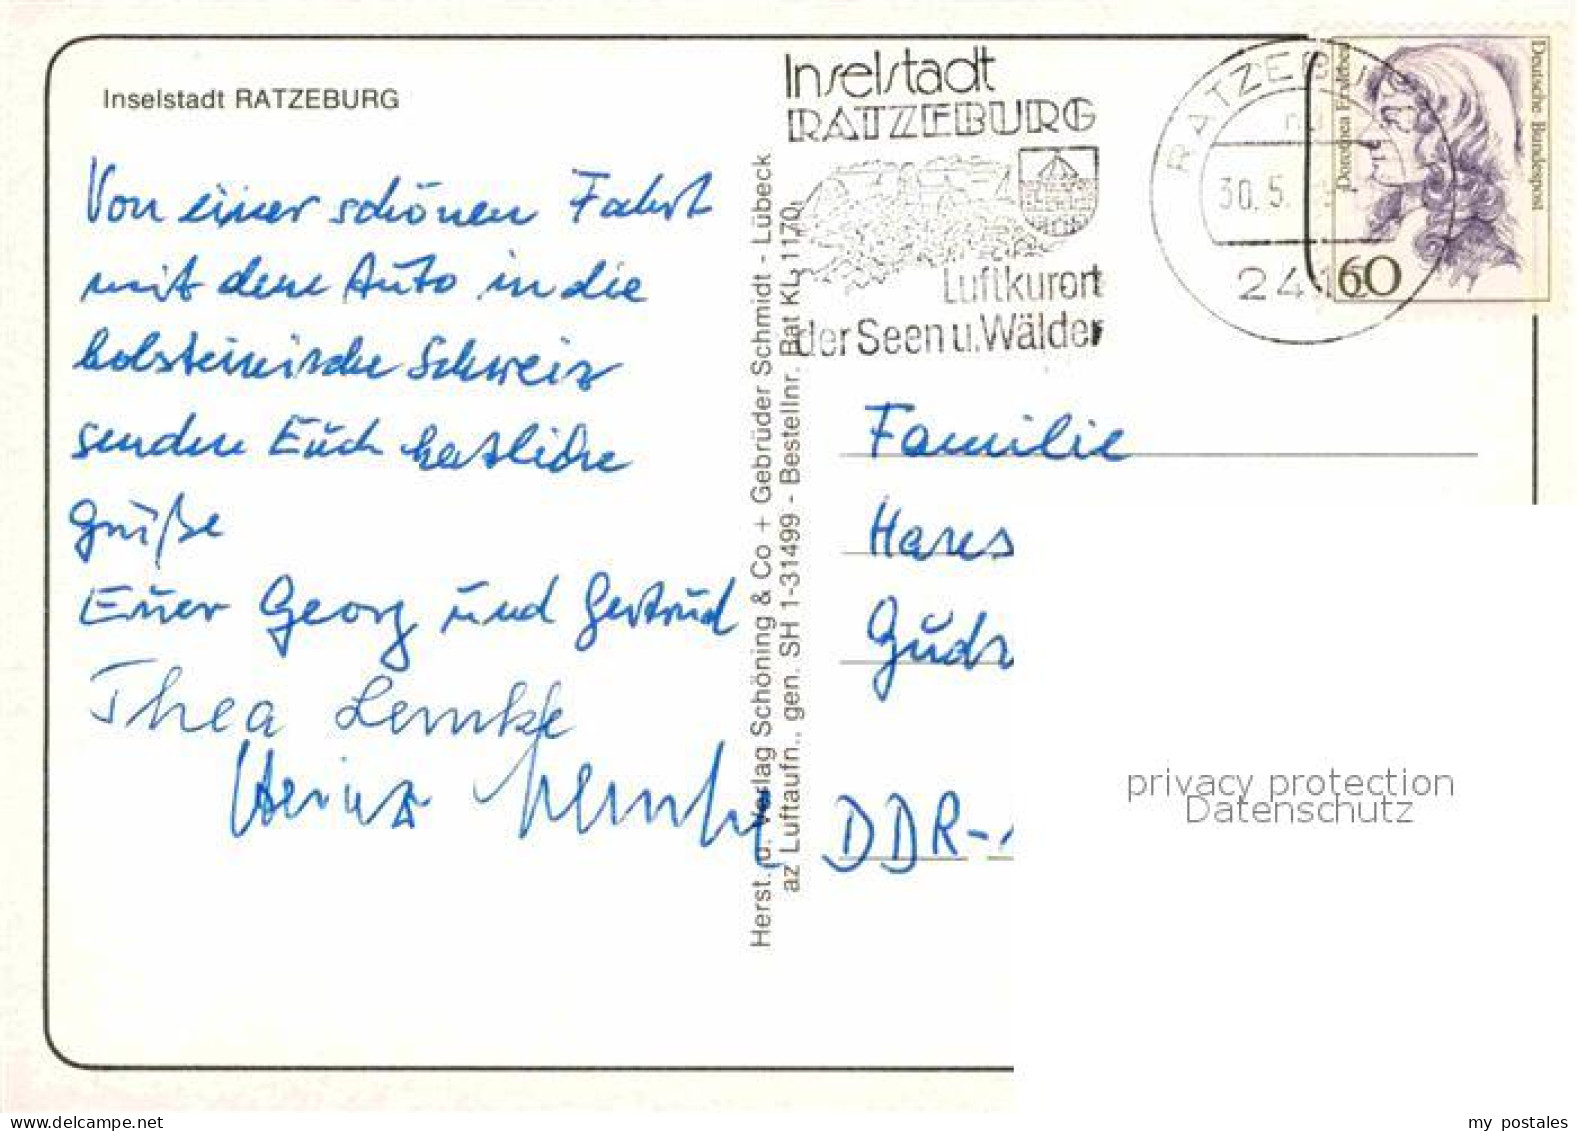 Inselstadt RATZEBURG
Von einer schönen Fahrt
mit dem Auto in die
holsteinische Schweiz
senden Euch herzliche
Grüße
Euer Georg und Gertrud
Thea Lemke
Heinz Lemke
Herst. u. Verlag Schöning & Co + Gebrüder Schmidt - Lübeck
az Luftaufn., gen. SH 1-31499 - Bestellnr. Rat KL 1170
Inselstadt
RATZEBURG
Luftkurort
der Seen u. Wälder
RATZEBU
30.5.
241
Dorothea Erxleben
Deutsche Bundespost
60
Familie
Hans
Gudr
DDR-
privacy protection
Datenschutz
www.delcampe.net
my postales